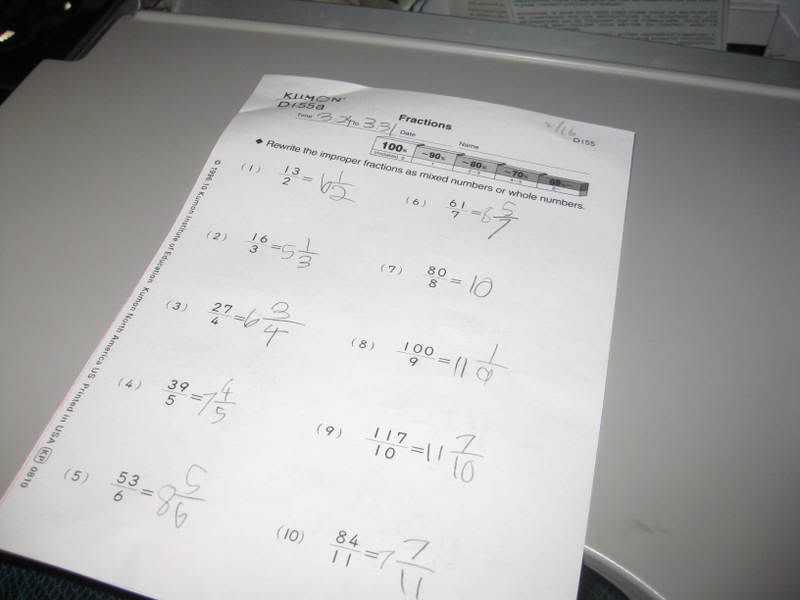 KUMON
D155a
Fractions
2/16
D155
Time 3:27 to 3:31 Date Name
100% ~90% ~80% ~70% 69%~
◆ Rewrite the improper fractions as mixed numbers or whole numbers.
(1) 13/2 = 6 1/2
(2) 16/3 = 5 1/3
(3) 27/4 = 6 3/4
(4) 39/5 = 7 4/5
(5) 53/6 = 8 5/6
(6) 61/7 = 8 5/7
(7) 80/8 = 10
(8) 100/9 = 11 1/9
(9) 117/10 = 11 7/10
(10) 84/11 = 7 7/11
© 1996.10 Kumon Institute of Education Kumon North America US Printed in USA KP 0810